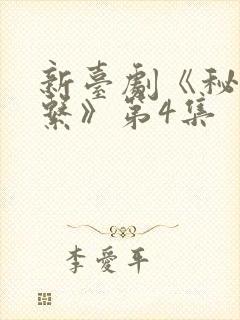 新臺劇《秘
繫》第4集
李愛平